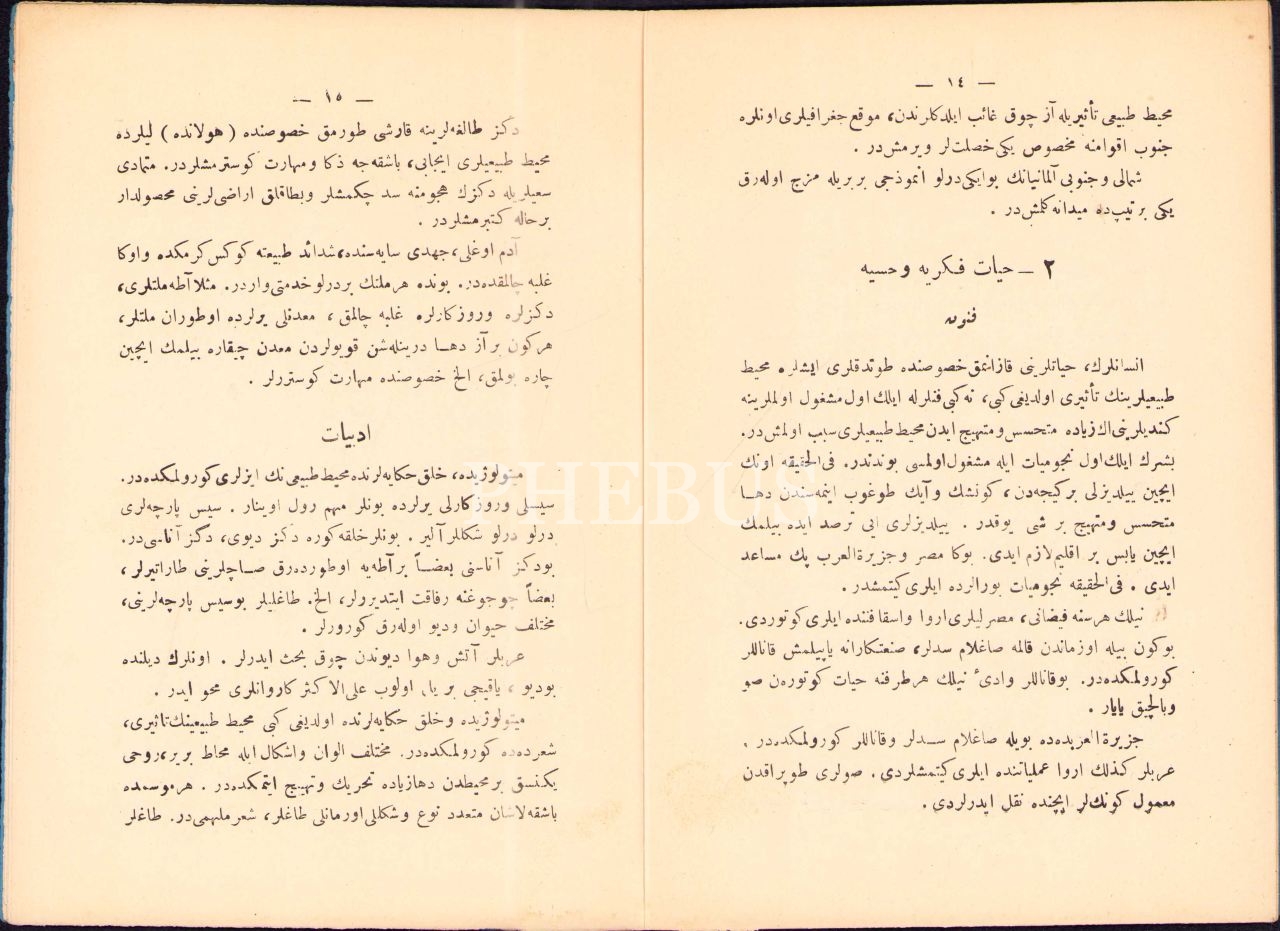 — ١٤ —
محيط طبيعى تأثيريله آز چوق غائب ايلدكلرندن، موقع جغرافيلرى اونلره
جنوب اقوامنه مخصوص يكى خصلتلر ويرمش‌در .
شمالى و جنوبى آلمانيانك بوايكى‌درلو انموذجى بربريله مزج اوله‌رق
يكى بر تيپ‌ده ميدانه كلمش‌در .
٢ – حيات فكريه و حسيه
فنون
انسانلرك، حياتلرينى قازانمق خصوصنده طوتدقلرى ايشلره محيط
طبيعيلرينك تأثيرى اولديغى كبى، نه‌كبى فنلرله ايلك اول مشغول اولملرينه
كنديلرينى اك زياده متحسس و متهيج ايدن محيط طبيعيلرى سبب اولمش‌در.
بشرك ايلك اول نجوميات ايله مشغول اولمسى بوندندر. فى‌الحقيقه اونك
ايچين ييلديزلى بر كيجه‌دن، كونشك و آيك طوغوب اينمه‌سندن دهـا
متحسس و متهيج بر شى يوقدر . ييلديزلرى ايى ترصد ايده بيلمك
ايچين يابس بر اقليم لازم ايدى. بوكا مصر و جزيرةالعرب پك مساعد
ايدى . فى‌الحقيقه نجوميات بورالرده ايلرى كيتمشدر .
نيلك هر سنه فيضانى، مصرليلرى اروا و اسقا فننده ايلرى كوتوردى.
بوكون بيله اوزماندن قالمه صاغلام سدلر، صنعتكارانه ياپيلمش قاناللر
كورولمكده‌در. بوقاناللر وادئ نيلك هرطرفنه حيات كوتورەن صو
وبالچيق ياپار .
جزيرة العربده‌ده بويله صاغلام سـدلر وقاناللر كورولمكده‌در .
عربلر كذلك اروا عملياتنده ايلرى كيتمشلردى. صولرى طوپراقدن
معمول كونك‌لر ايچنده نقل ايدرلردى .
— ١٥ —
دكز طالغه‌لرينه قارشى طورمق خصوصنده ( هولانده ) ليلرده
محيط طبيعيلرى ايجابى، باشقه‌جه ذكا ومهارت كوسترمشلردر. متمادى
سعيلريله دكزك هجومنه سد چكمشلر وبطاقلق اراضى‌لرينى محصولدار
بر حاله كتيرمشلردر .
آدم اوغلى، جهدى سايه‌سنده، شدائد طبيعته كوكس كرمكده واوكا
غلبه چالمقده‌در. بونده هرملتك بردرلو خدمتى واردر. مثلا آطه ملتلرى،
دكزلره وروزكارلره غلبه چالمق ، معدنلى يرلرده اوطوران ملتلر،
هركون بر آز دهـا درينله‌شن قويولردن معدن چيقاره بيلمك ايچين
چاره بولمق، الخ خصوصنده مهارت كوسترر‌لر .
ادبيات
ميتولوژيده، خلق حكايه‌لرنده محيط طبيعى‌نك ايزلرى كورولمكده‌در.
سيسلى وروزكارلى يرلرده بونلر مهم رول اوينار . سيس پارچه‌لرى
درلو درلو شكللر آلير . بونلر خلقه كوره دكز ديوى، دكز آناسى‌در.
بودكز آناسنى بعضـاً بر آطه‌يه اوطورده‌رق صـاچلرينى طاراتيرلر،
بعضاً چوجوغنه رفاقت ايتديرولر، الخ. طاغليلر بوسيس پارچه‌لرينى،
مختلف حيوان وديو اوله‌رق كورورلر .
عربلر آتش وهوا ديوندن چوق بحث ايدرلر . اونلرك ديلنده
بوديو ، ياقيجى بر يل اولوب على‌الاكثر كاروانلرى محو ايدر .
ميتولوژيده وخلق حكايه‌لرنده اولديغى كبى محيط طبيعينك تأثيرى،
شعرده‌ده كورولمكده‌در. مختلف الوان واشكال ايله محاط بر ير، روحى
يكنسق بر محيطدن دها زياده تحريك وتهييج ايتمكده‌در . هرموسمده
باشقه‌لاشان متعدد نوع وشكللى اورمانلى طاغلر، شعر ملهمى‌در. طاغلر
PHEBUS